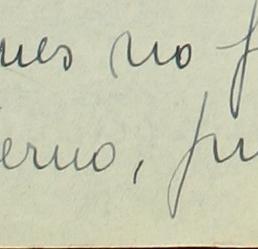 ues no f
erno, fu